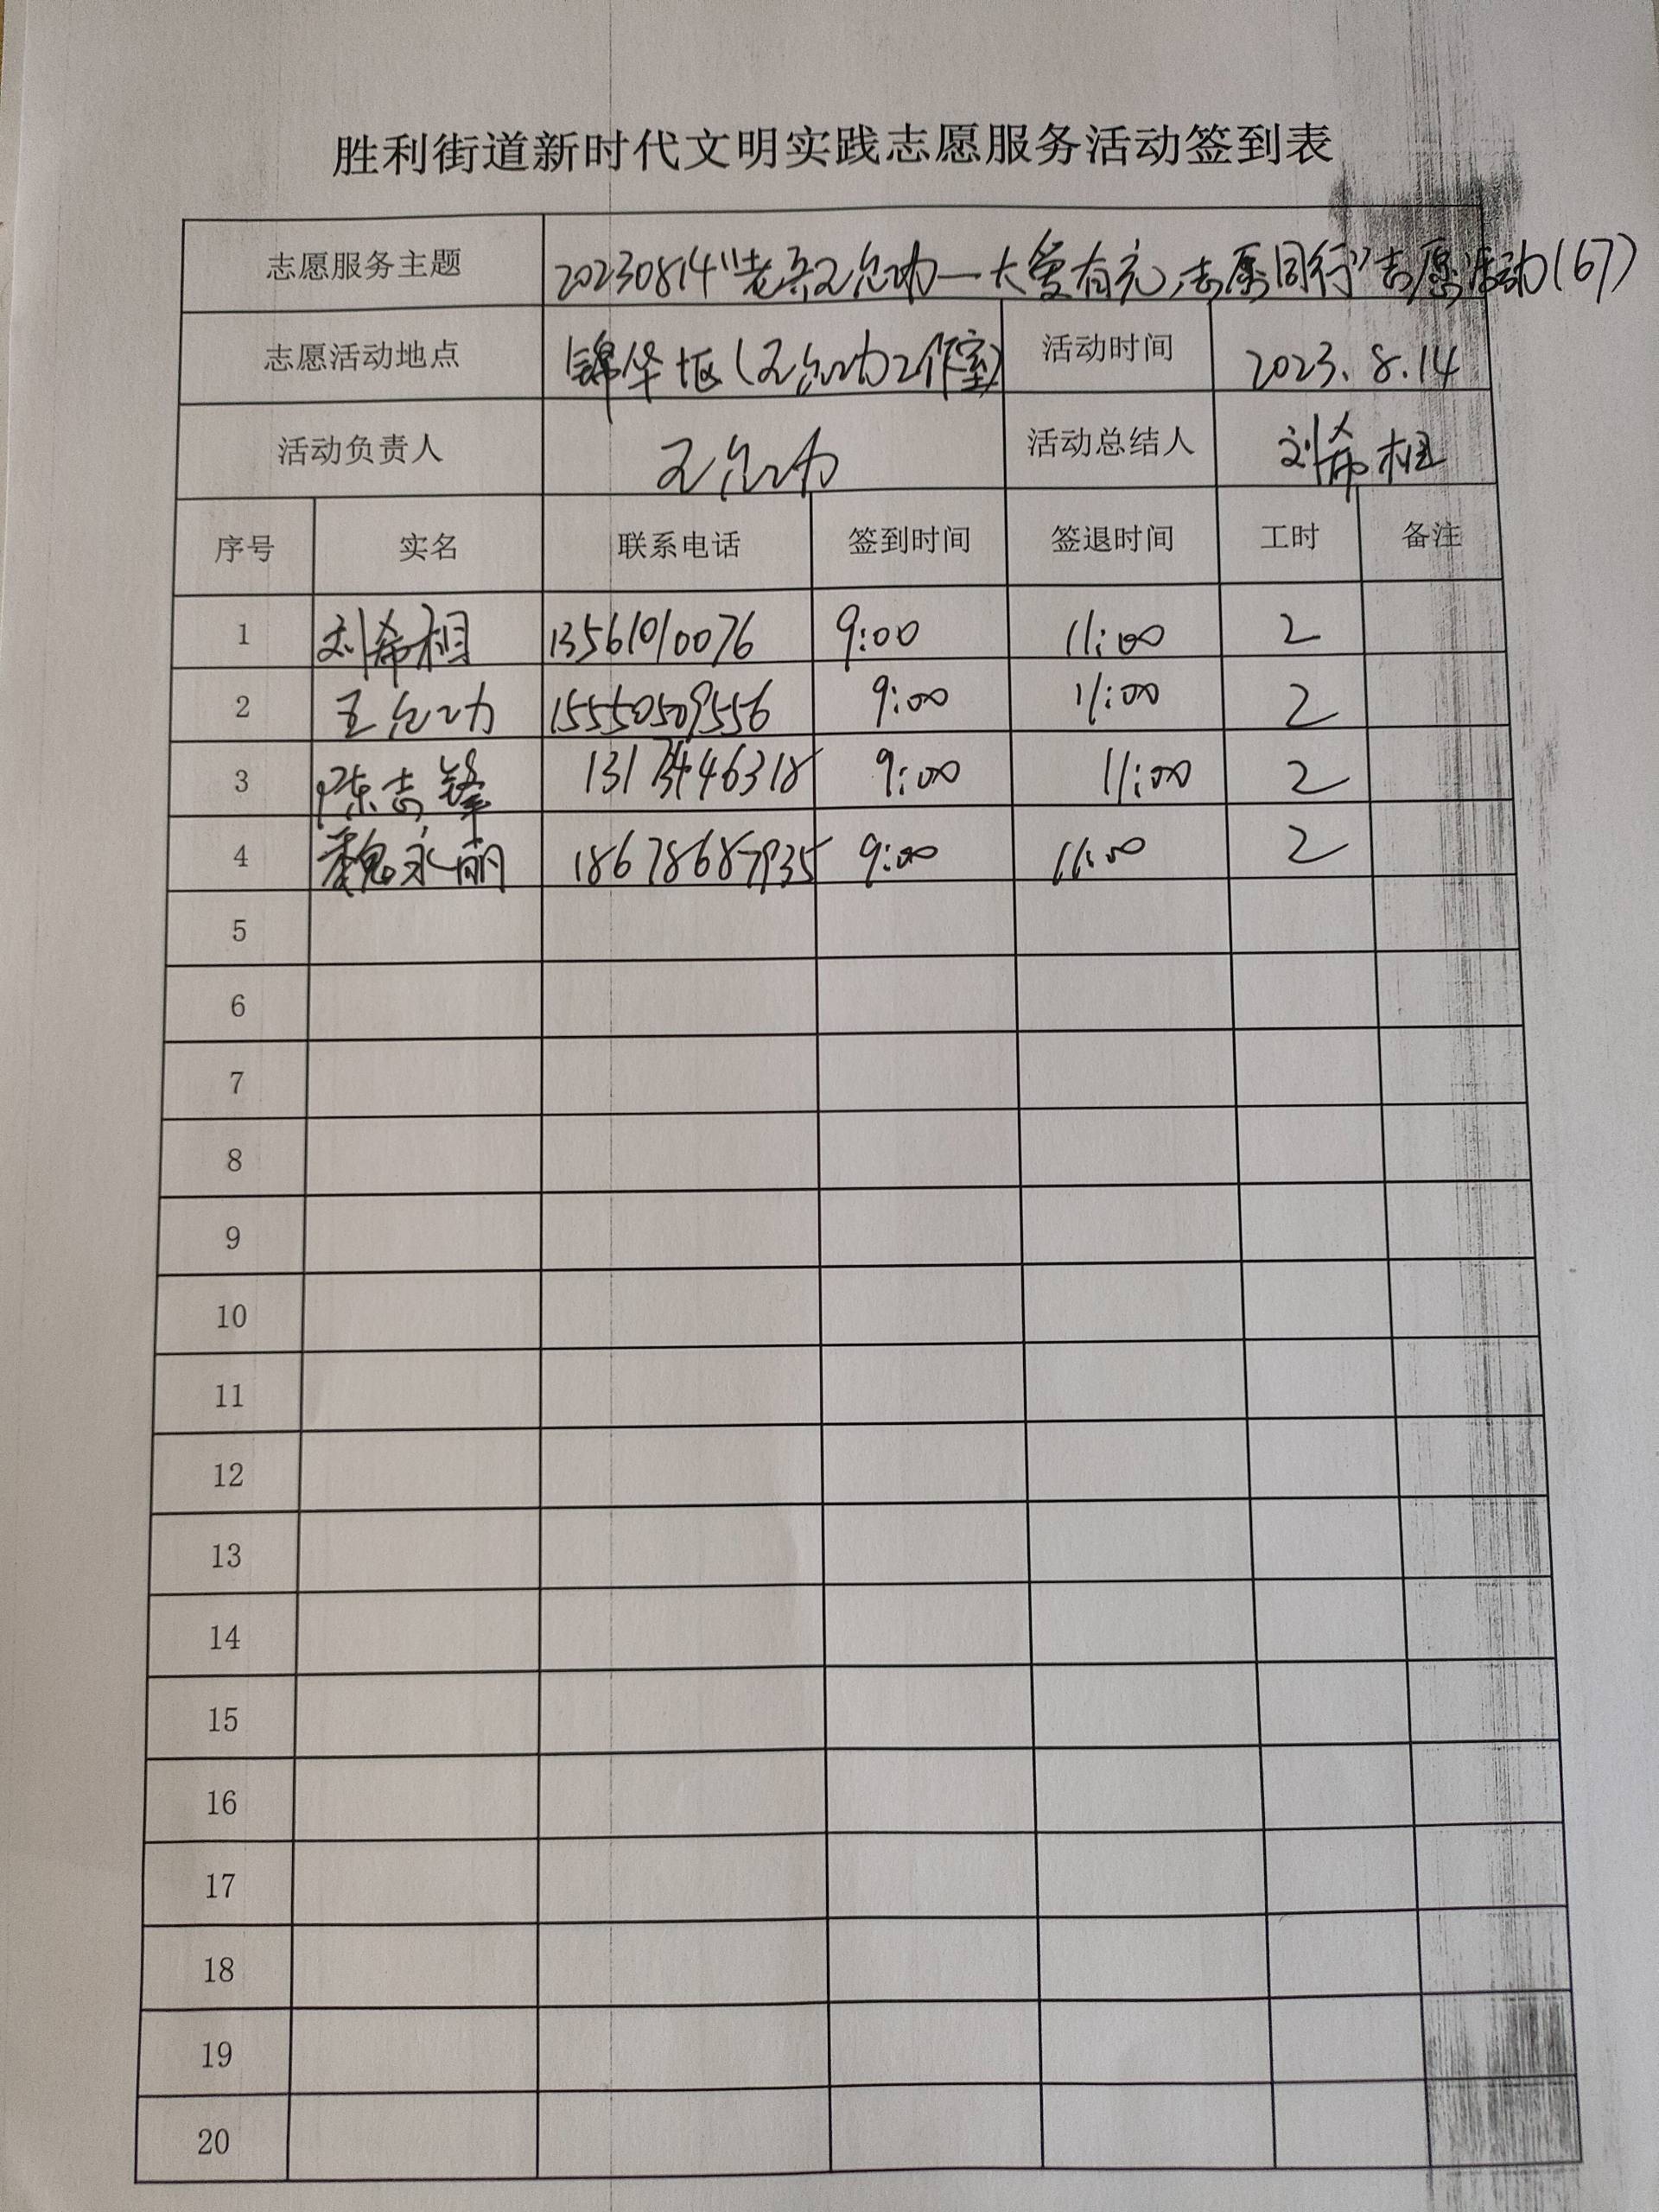 胜利街道新时代文明实践志愿服务活动签到表
志愿服务主题 20230814"老兵王允功—大爱有充,志愿同行"志愿活动(67)
志愿活动地点 锦华 (王允功工作室) 活动时间 2023.8.14
活动负责人 王允功 活动总结人 刘希相
序号 实名 联系电话 签到时间 签退时间 工时 备注
1 刘希相 13561010076 9:00 11:00 2
2 王允功 15550509556 9:00 11:00 2
3 陈志锋 9:00 11:00 2
4 魏永丽 18678687935 9:00 11:00 2
5
6
7
8
9
10
11
12
13
14
15
16
17
18
19
20